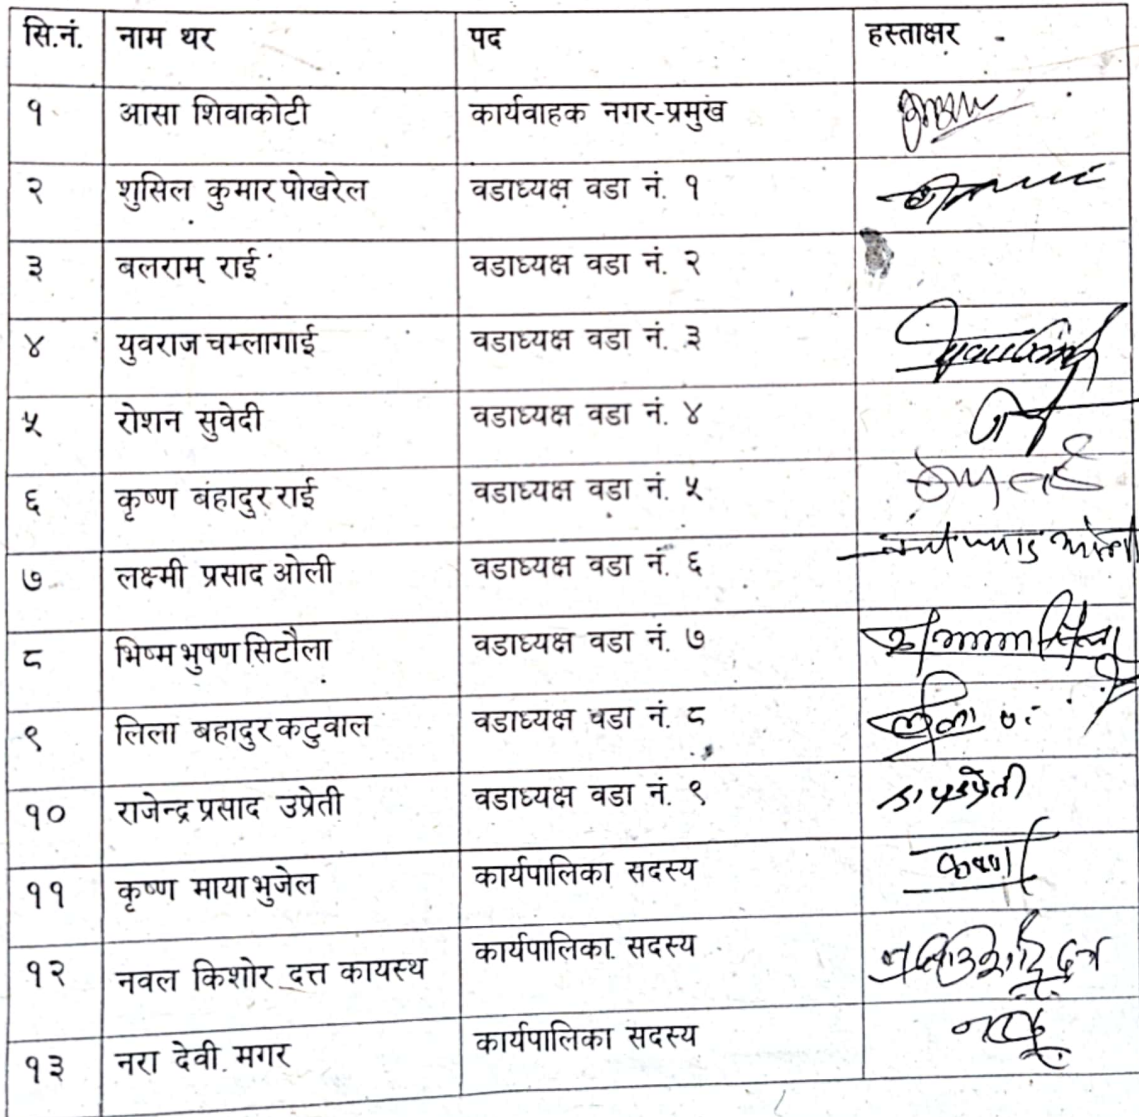 सि.नं. नाम थर पद हस्ताक्षर
१ आसा शिवाकोटी कार्यवाहक नगर-प्रमुख
२ शुसिल कुमार पोखरेल वडाध्यक्ष वडा नं. १
३ बलराम् राई वडाध्यक्ष वडा नं. २
४ युवराज चम्लागाई वडाध्यक्ष वडा नं. ३
५ रोशन सुवेदी वडाध्यक्ष वडा नं. ४
६ कृष्ण बहादुर राई वडाध्यक्ष वडा नं. ५
७ लक्ष्मी प्रसाद ओली वडाध्यक्ष वडा नं. ६
८ भिष्म भुषण सिटौला वडाध्यक्ष वडा नं. ७
९ लिला बहादुर कटुवाल वडाध्यक्ष वडा नं. ८
१० राजेन्द्र प्रसाद उप्रेती वडाध्यक्ष वडा नं. ९
११ कृष्ण माया भुजेल कार्यपालिका सदस्य
१२ नवल किशोर दत्त कायस्थ कार्यपालिका सदस्य
१३ नरा देवी मगर कार्यपालिका सदस्य